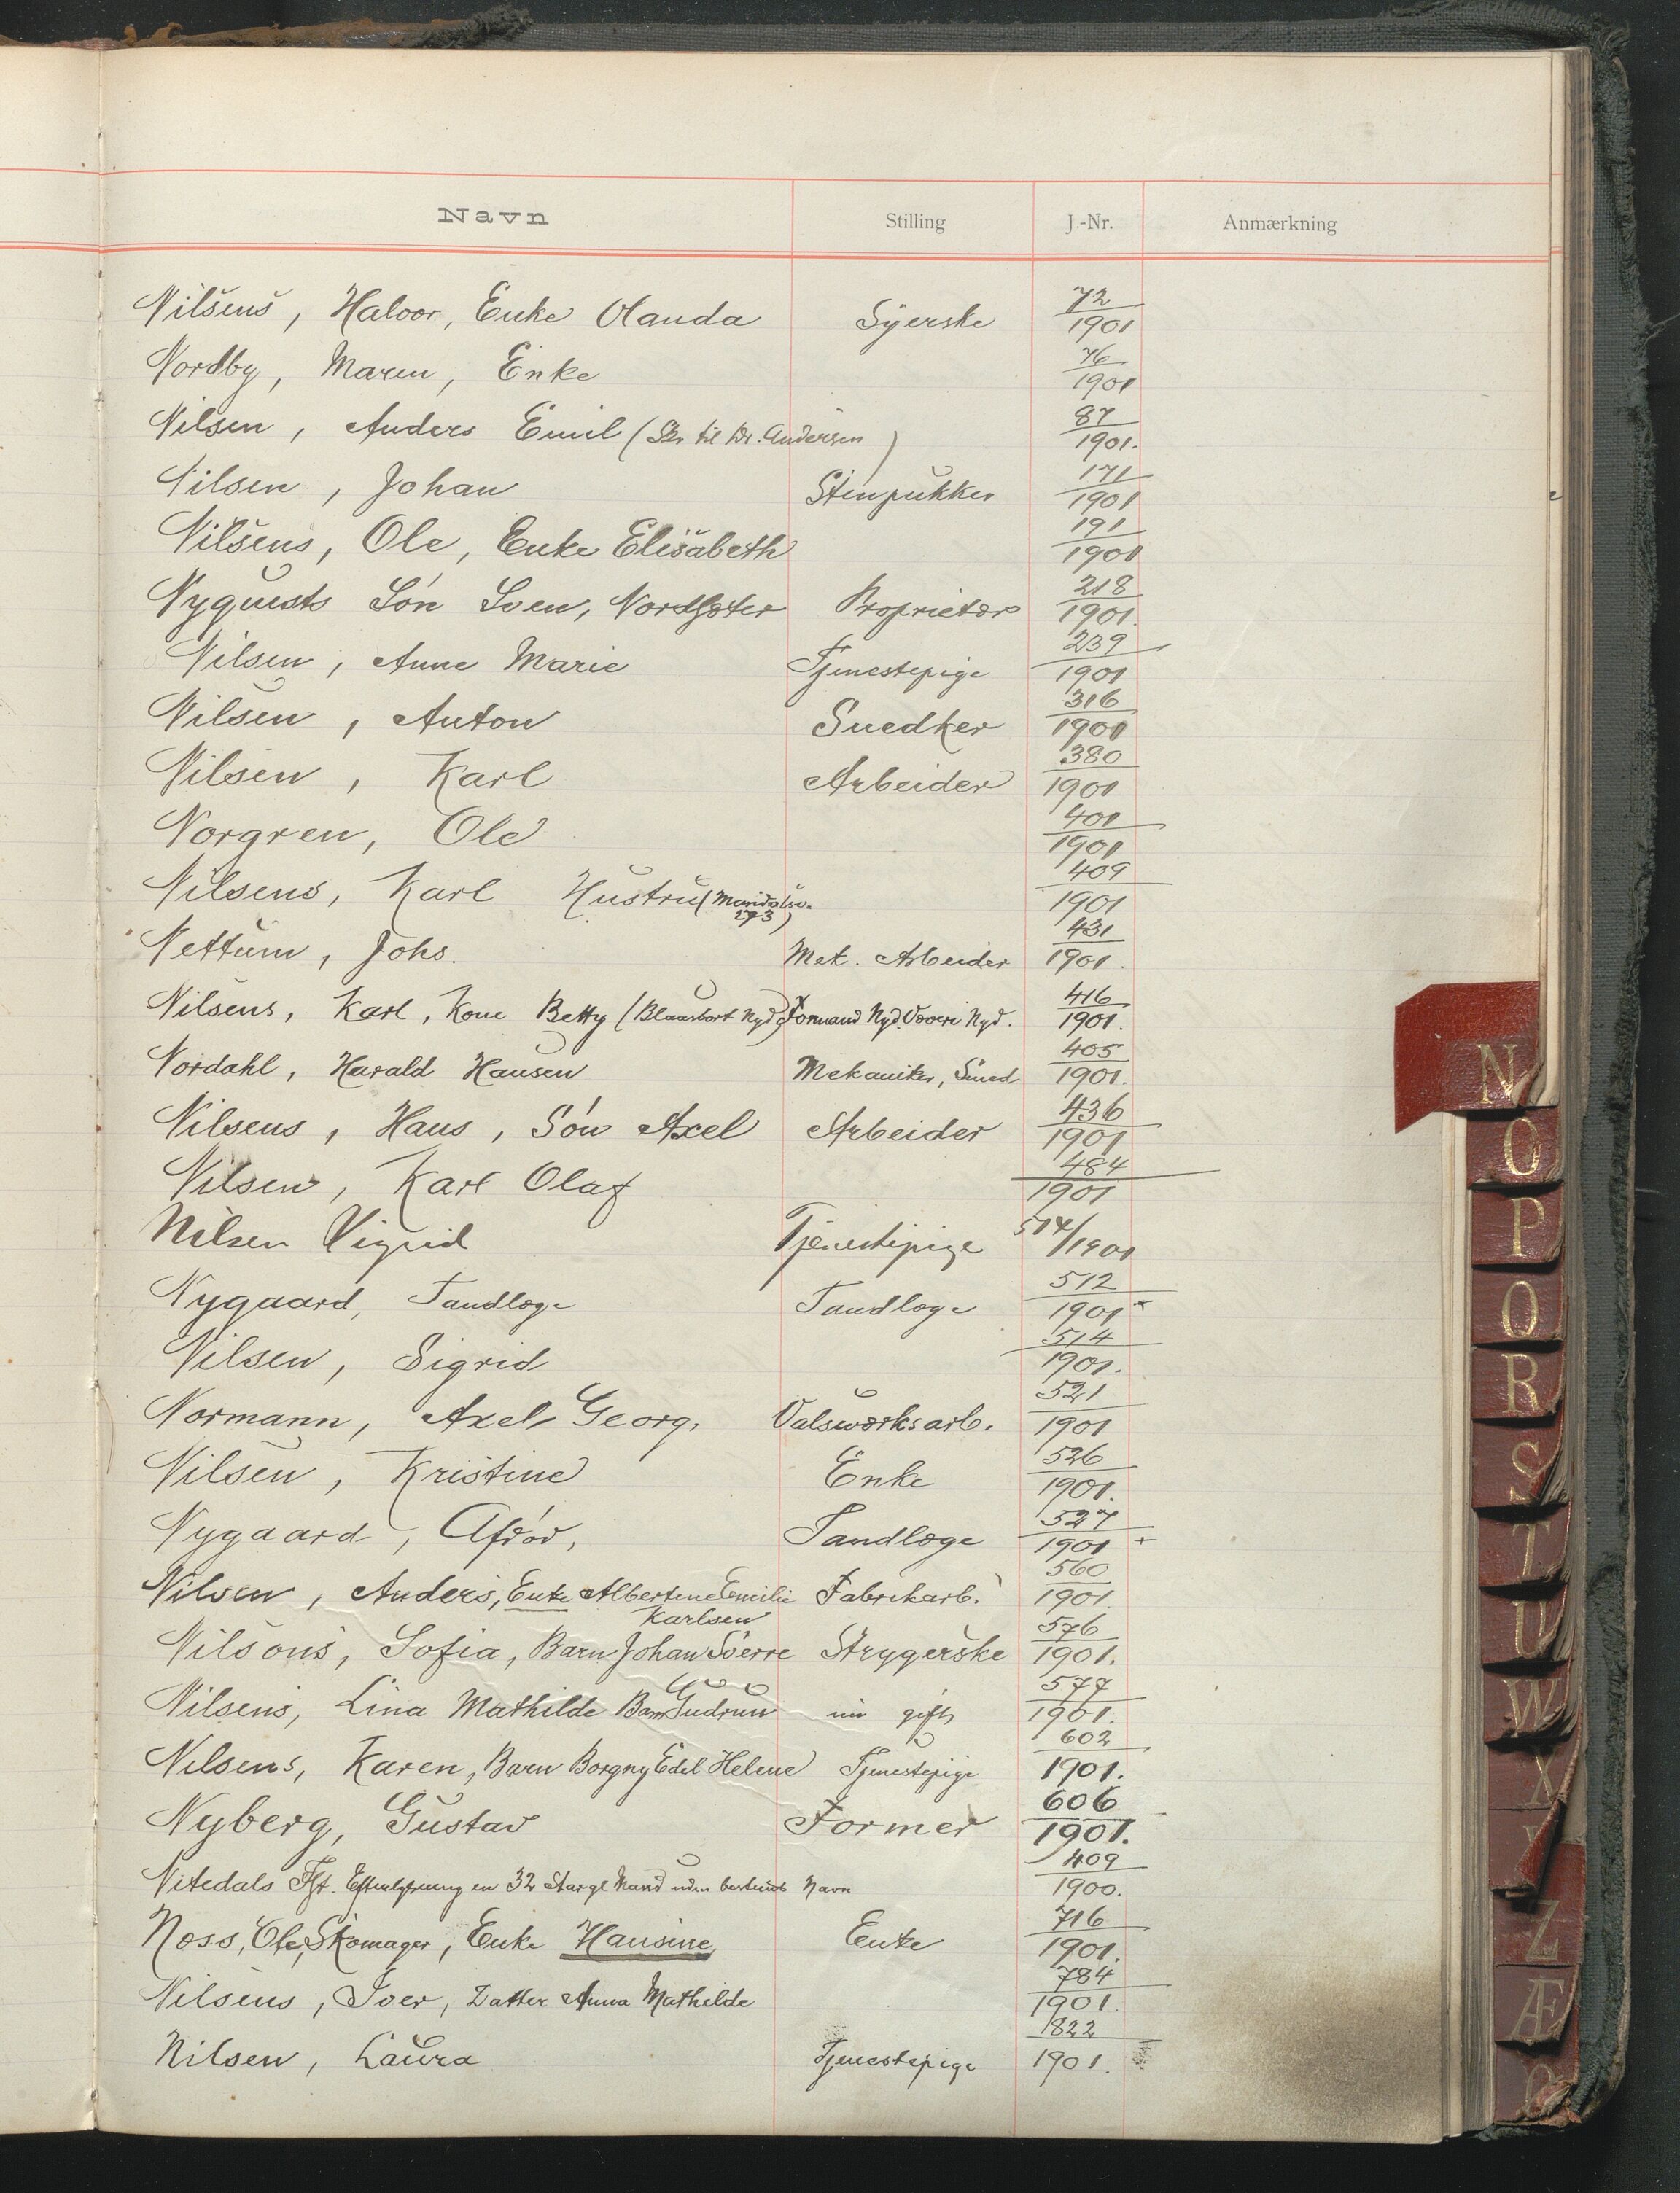 Navn Stilling J.-Nr. Anmærkning
Nilsens, Halvor, Enke Olanda Syerske 72/1901
Nordby, Maren, Enke 76/1901
Nilsen, Anders Emil (Skr til Dr. Andersen) 87/1901.
Nilsen, Johan Stenpukker 171/1901
Nilsens, Ole, Enke Elisabeth 191/1901
Nyquists Søn Sven, Proprietær 218/1901.
Nilsen, Anne Marie Tjenestepige 239/1901
Nilsen, Anton Snedker 316/1901
Nilsen, Karl Arbeider 380/1901
Norgren, Ole 401/1901
Nilsens, Karl Hustru (Maridalsv. 273) 409/1901
Nettum, Johs. Mek. Arbeider 431/1901.
Nilsens, Karl, Kone Betty ( Nyd) Formand Nyd. Væveri Nyd. 416/1901.
Nordahl, Harald Hansen Mekaniker, Smed 405/1901.
Nilsens, Hans, Søn Axel Arbeider 436/1901
Nilsen, Karl Olaf 484/1901
Nilsen Sigrid Tjenestepige 514/1901
Nygaard, Tandlæge Tandlæge 512/1901 x
Nilsen, Sigrid 514/1901.
Normann, Axel Georg. Valsværksarb. 521/1901
Nilsen, Kristine Enke 526/1901.
Nygaard, Tandlæge 527/1901 +
Nilsen, Anders, Enke Albertine Emilie Fabrikarb. 560/1901.
Karlsen
Nilsons, Sofia, Barn Johan Sverre Strygerske 576/1901.
Nilsens, Lina Mathilde Barn Gudrun gift 577/1901.
Nilsens, Karen, Barn Borgny Edel Helene Tjenestepige 602/1901.
Nyberg, Gustav Former 606/1901.
Nitedals Efterlysning en 32 Aar gl Mand uden bestemt Navn 409/1900.
Noss, Ole, Skomager, Enke Hansine Enke 716/1901.
Nilsens, Iver, Datter Anna Mathilde 784/1901.
Nilsen, Laura Tjenestepige 1822/1901.
N
O
P
Q
R
S
T
U
W
X
Z
Æ